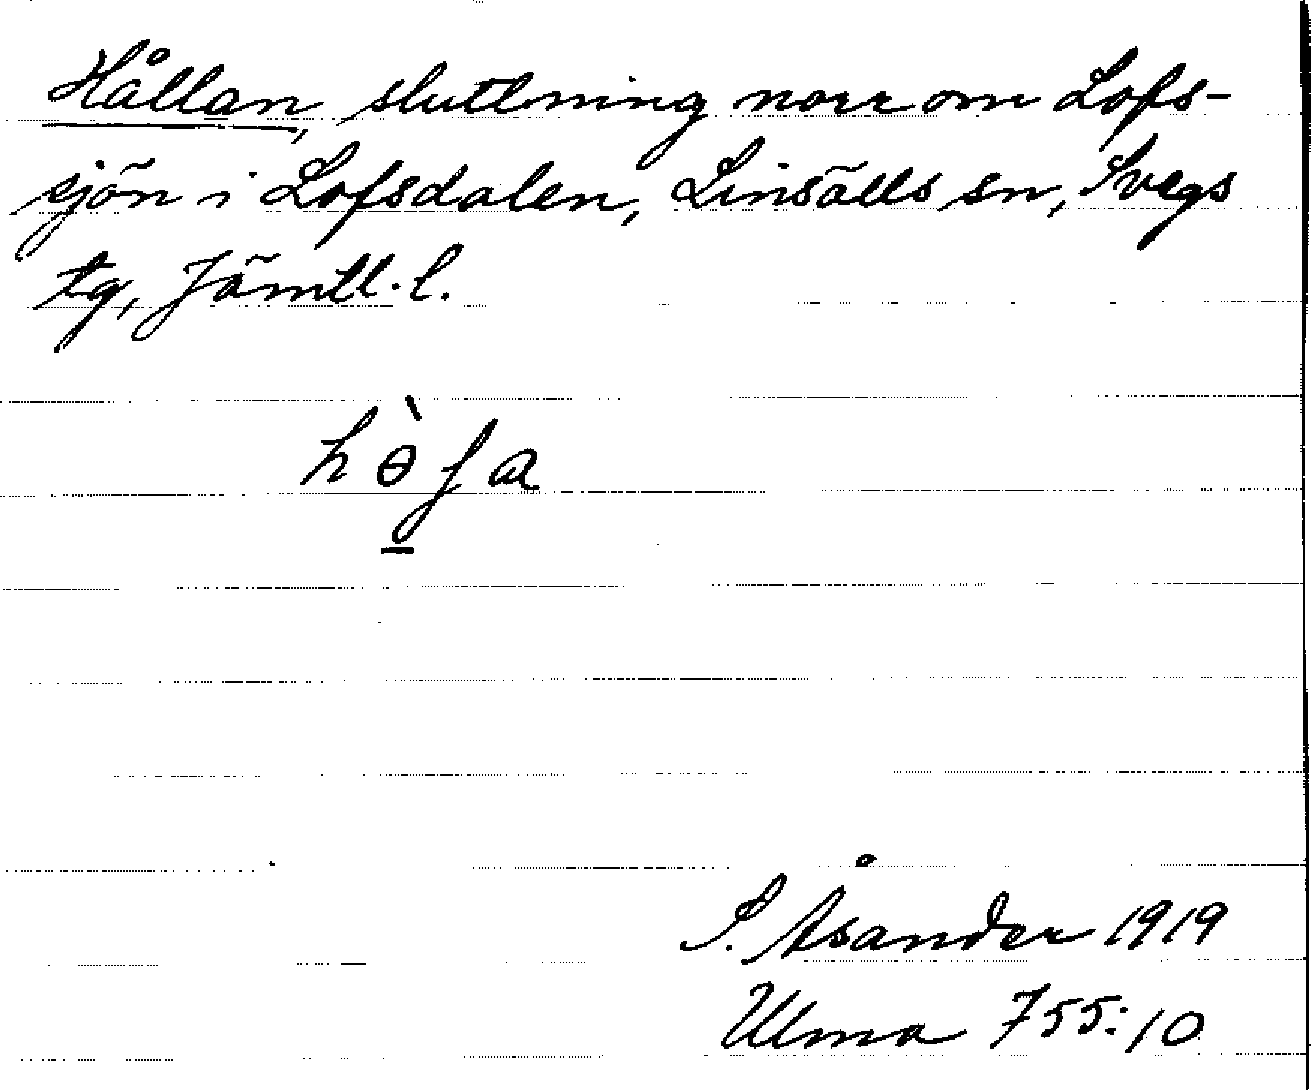 Hållan, sluttning norr om Lofs-
sjön i Lofsdalen, Linsälls sn, Svegs
tg, Jämtl. l.
S. Åsander 1919
Ulma 755:10